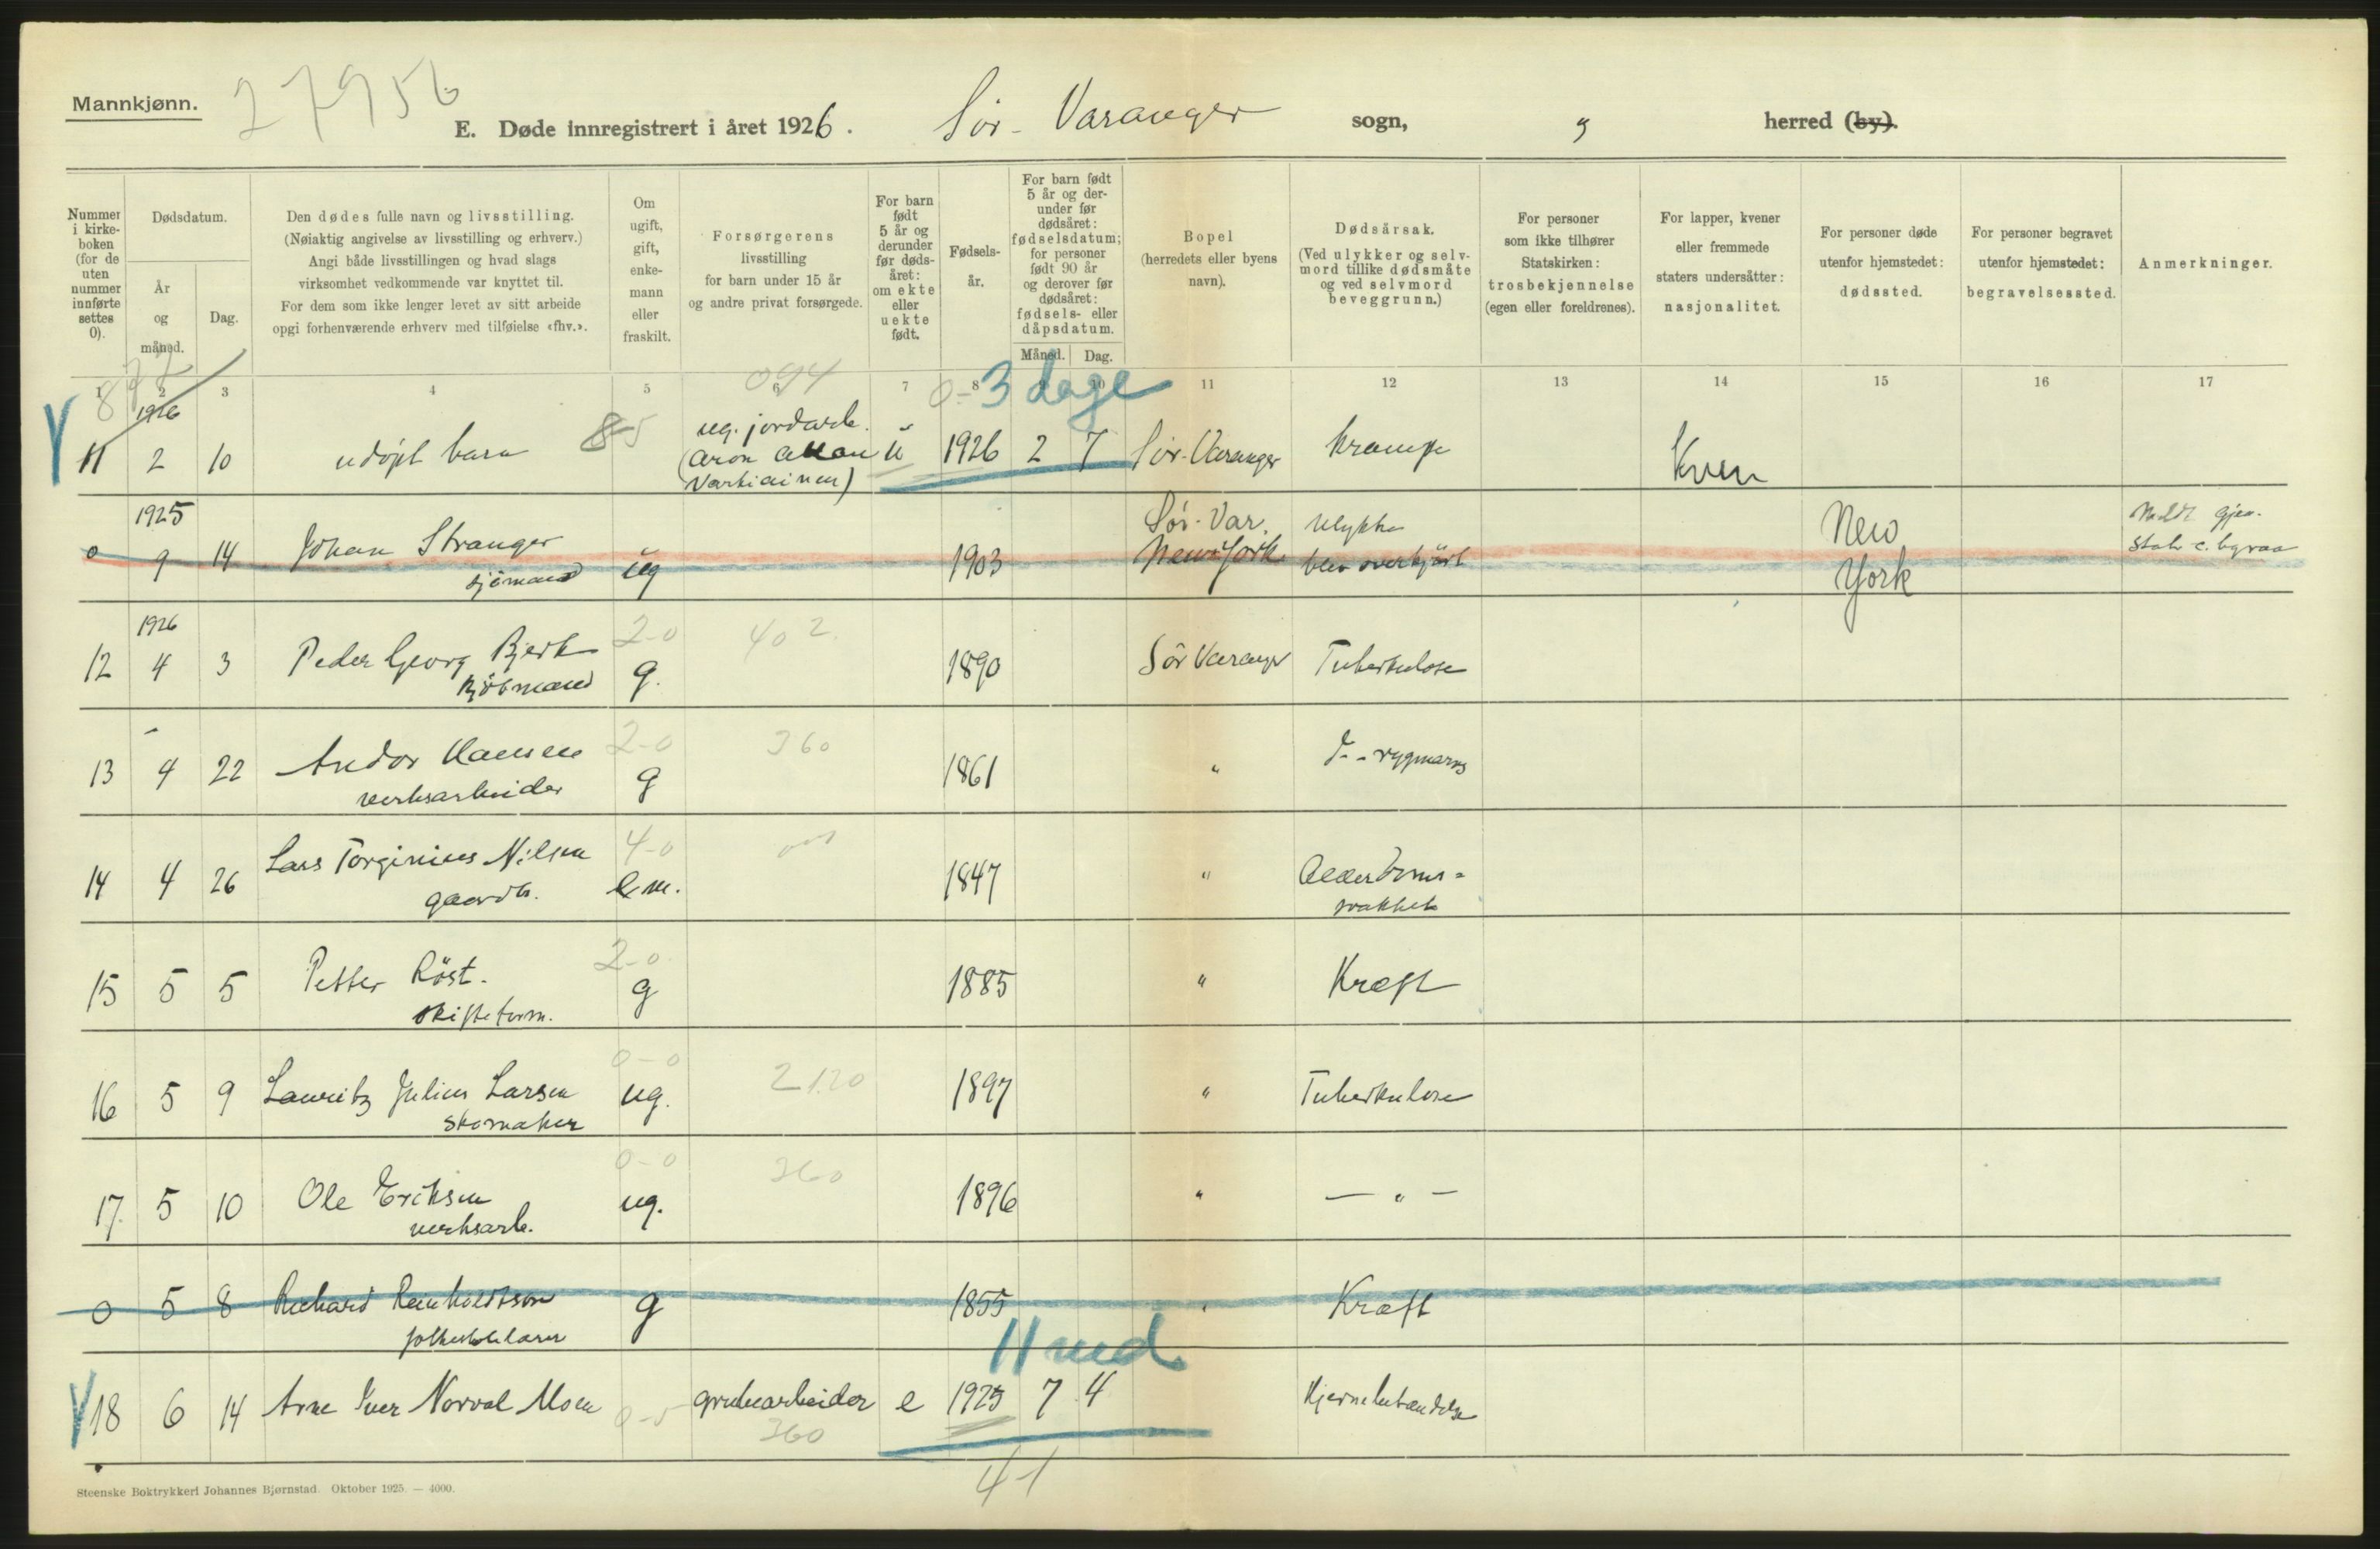 Mannkjønn.
27956
E. Døde innregistrert i året 1926.
Sør-Varanger sogn, " herred (by).
Nummer i kirkeboken (for de uten nummer innførte settes 0).
Dødsdatum.
År og måned.
Dag.
Den dødes fulle navn og livsstilling.
(Nøiaktig angivelse av livsstilling og erhverv.)
Angi både livsstillingen og hvad slags
virksomhet vedkommende var knyttet til.
For dem som ikke lenger levet av sitt arbeide
opgi forhenværende erhverv med tilføielse «fhv.».
Om ugift, gift, enkemann eller fraskilt.
Forsørgerens livsstilling
for barn under 15 år
og andre privat forsørgede.
For barn født 5 år og derunder før dødsåret: om ekte eller uekte født.
Fødselsår.
For barn født 5 år og derunder før dødsåret: fødselsdatum; for personer født 90 år og derover før dødsåret: fødsels- eller dåpsdatum.
Måned. Dag.
Bopel
(herredets eller byens navn).
Dødsårsak.
(Ved ulykker og selvmord tillike dødsmåte og ved selvmord beveggrunn.)
For personer som ikke tilhører Statskirken: trosbekjennelse (egen eller foreldrenes).
For lapper, kvener eller fremmede staters undersåtter: nasjonalitet.
For personer døde utenfor hjemstedet: dødssted.
For personer begravet utenfor hjemstedet: begravelsessted.
Anmerkninger.
1 2 3 4 5 6 7 8 9 10 11 12 13 14 15 16 17
094 0-3 dage
1926
11 2 10 udøpt barn 85 ug. jordarb. (Aron Allan Varkiainen) u 1926 2 7 Sør-Varanger Krampe Kven
1925
0 9 14 Johan Stranger ug 1903 Sør-Var. Ulykke New
sjömand New York blev overkjört York
1926
12 4 3 Peder Georg Bjerk 2-0 402. 1890 Sör Varanger Tuberkulose
kjöbmand g.
13 4 22 Andor Hansen 2-0 360 1861 " T- - rygmarvs
verksarbeider g
14 4 26 Lars Torginius Nilsen 4-0 1847 " Alderdoms=
gaardb. e.m. svakhet
15 5 5 Petter Röst. 2-0 1885 " Kræft
skifteform. g
16 5 9 Lauritz Julius Larsen 0-0 2120 1897 " Tuberkulose
skomaker ug.
17. 5 10 Ole Eriksen 0-0 360 1896 " — " —
verksarb. ug.
0 5 8 Richard Reinholdtsen g 1855 " Kræft
11 md.
18 6 14 Arne Iver Norval Moen 0-5 grubearbeider e 1925 7 4 Hjernebetændelse
360
4-1
Steenske Boktrykkeri Johannes Bjørnstad. Oktober 1925. — 4000.